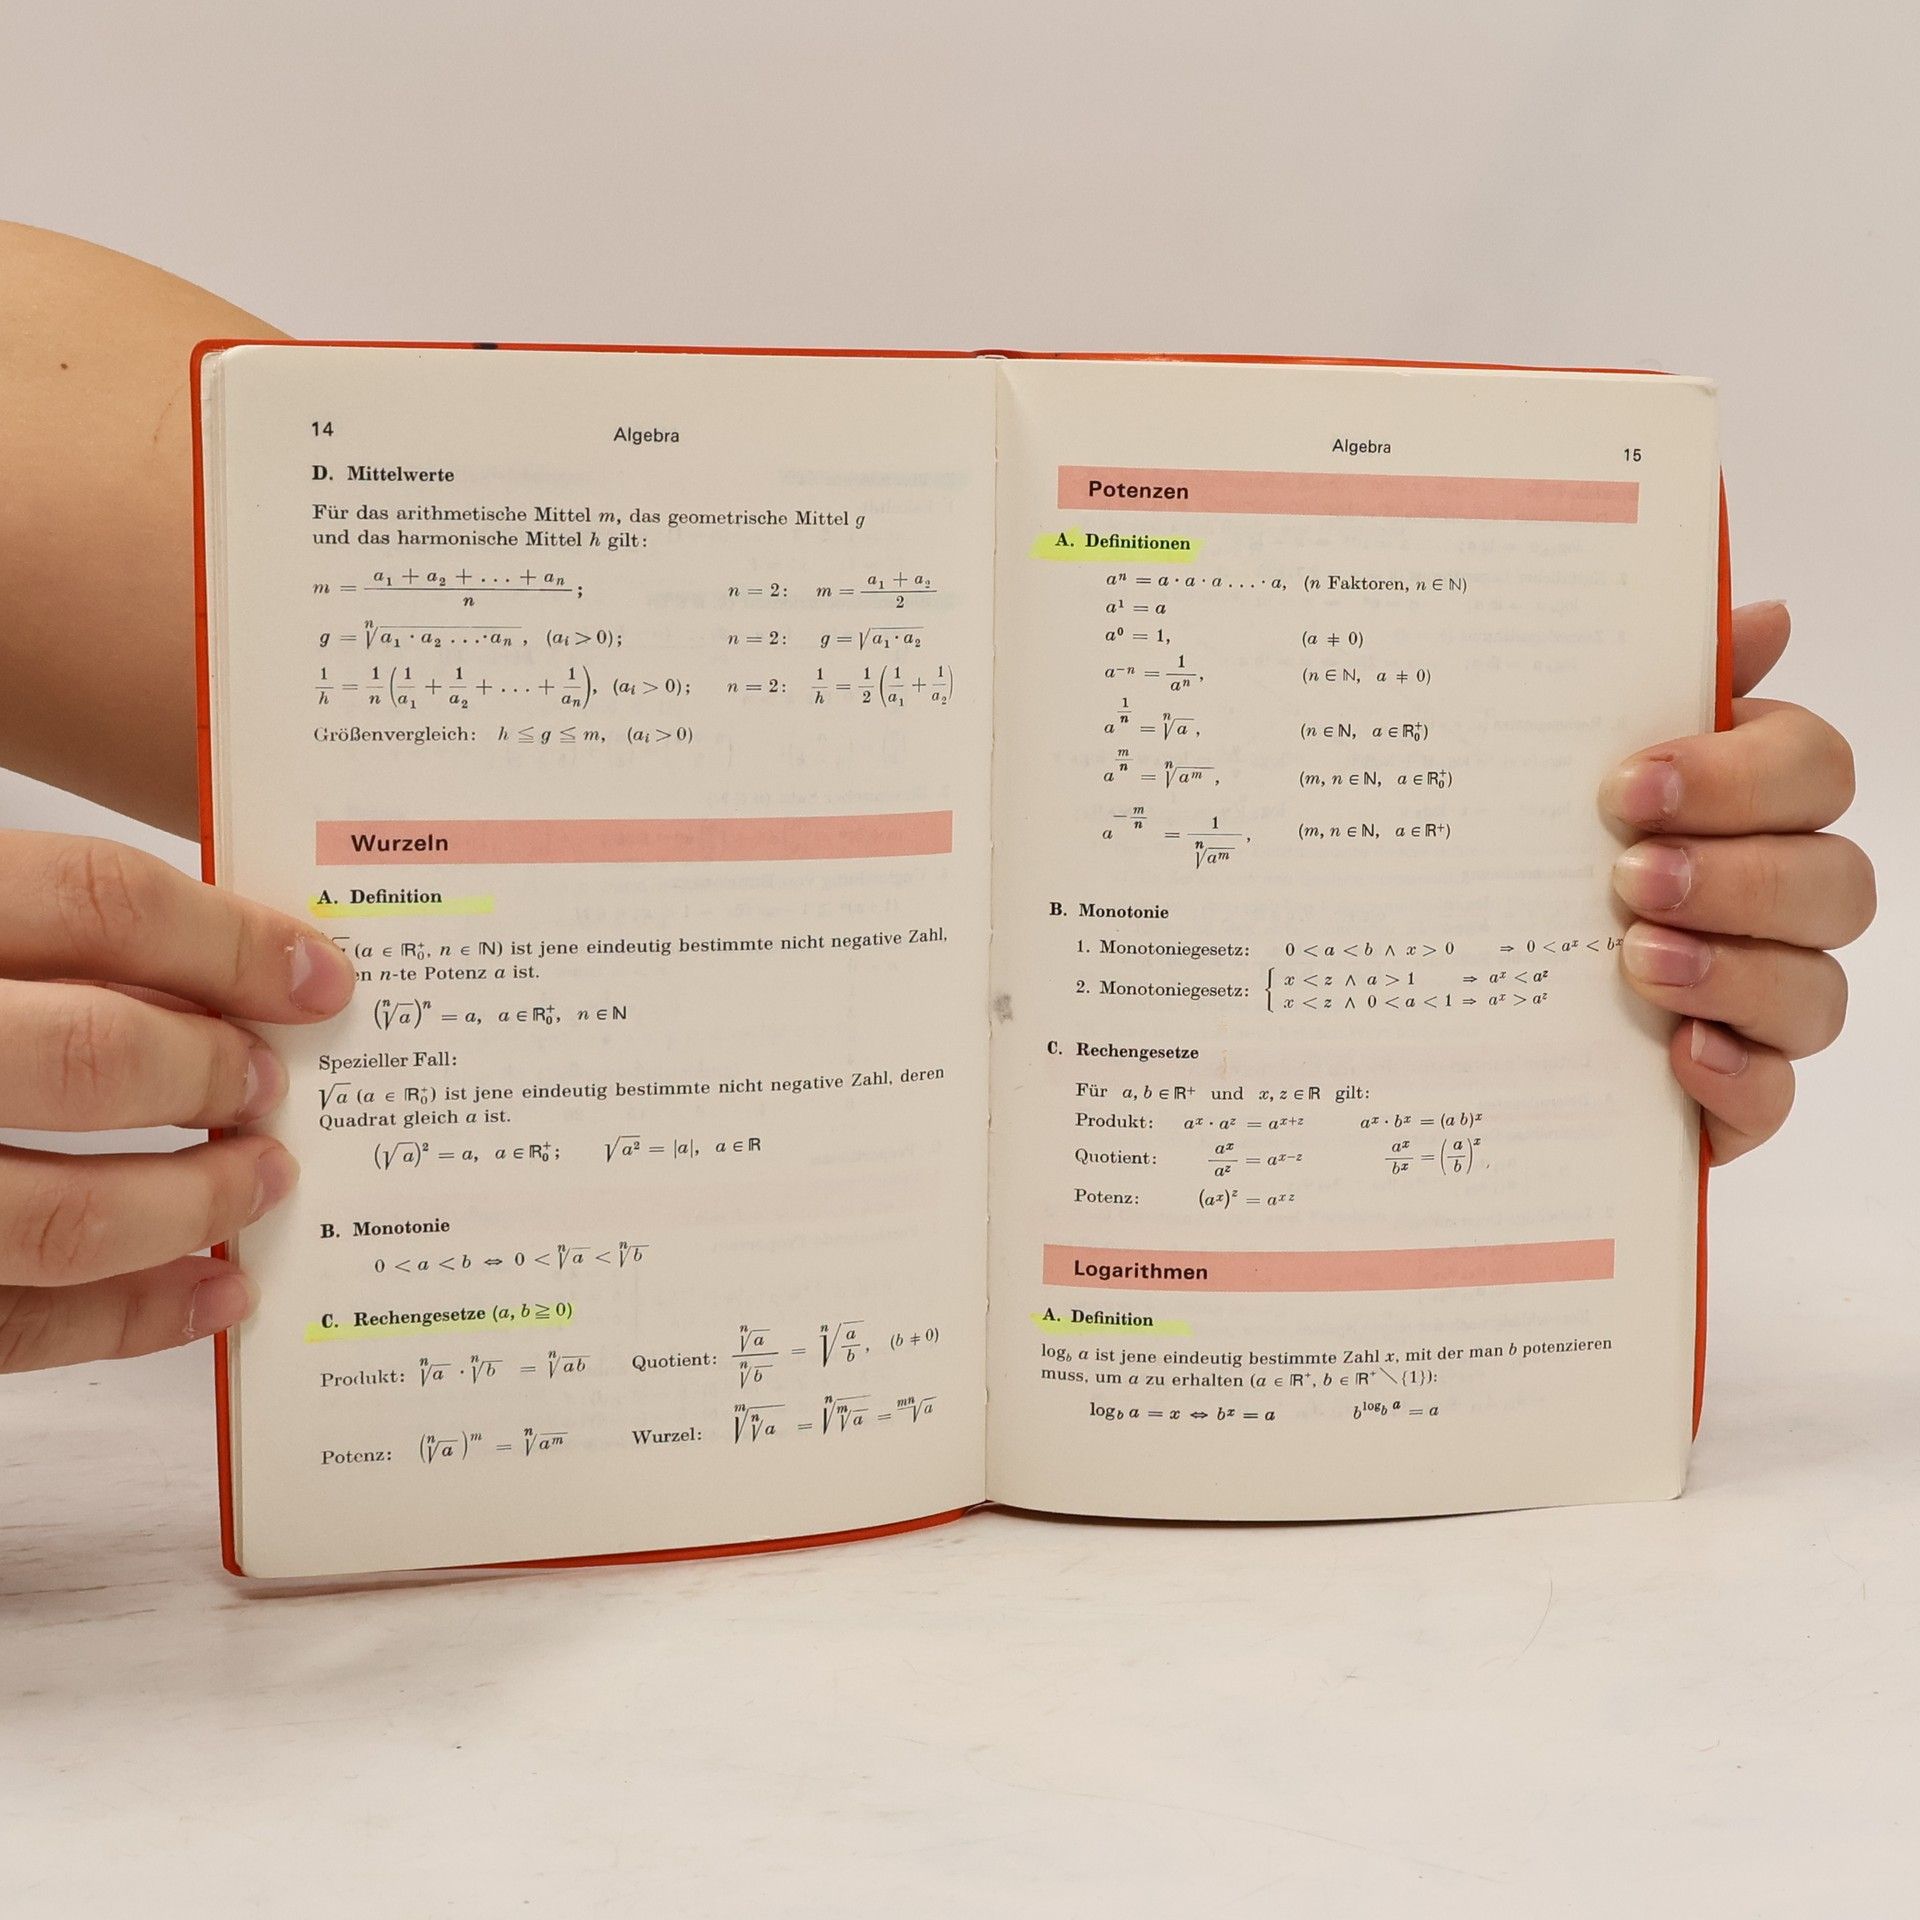 14
Algebra
D. Mittelwerte
Für das arithmetische Mittel m, das geometrische Mittel g
und das harmonische Mittel h gilt:
m = (a₁ + a₂ + ... + aₙ)/n ; n = 2: m = (a₁ + a₂)/2
g = ⁿ√(a₁ · a₂ ...· aₙ), (aᵢ > 0); n = 2: g = √(a₁ · a₂)
1/h = 1/n (1/a₁ + 1/a₂ + ... + 1/aₙ), (aᵢ > 0); n = 2: 1/h = 1/2 (1/a₁ + 1/a₂)
Größenvergleich: h ≦ g ≦ m, (aᵢ > 0)
Wurzeln
A. Definition
(a ∈ ℝ₀⁺, n ∈ ℕ) ist jene eindeutig bestimmte nicht negative Zahl,
n-te Potenz a ist.
(ⁿ√a)ⁿ = a, a ∈ ℝ₀⁺, n ∈ ℕ
Spezieller Fall:
√a (a ∈ ℝ₀⁺) ist jene eindeutig bestimmte nicht negative Zahl, deren
Quadrat gleich a ist.
(√a)² = a, a ∈ ℝ₀⁺; √a² = |a|, a ∈ ℝ
B. Monotonie
0 < a < b ⇔ 0 < ⁿ√a < ⁿ√b
C. Rechengesetze (a, b ≧ 0)
Produkt: ⁿ√a · ⁿ√b = ⁿ√ab Quotient: ⁿ√a/ⁿ√b = ⁿ√(a/b), (b ≠ 0)
Potenz: (ⁿ√a)ᵐ = ⁿ√aᵐ Wurzel: ᵐ√(ⁿ√a) = ⁿ√(ᵐ√a) = ᵐⁿ√a
Algebra
15
Potenzen
A. Definitionen
aⁿ = a · a · a ... · a, (n Faktoren, n ∈ ℕ)
a¹ = a
a⁰ = 1, (a ≠ 0)
a⁻ⁿ = 1/aⁿ, (n ∈ ℕ, a ≠ 0)
a^(1/n) = ⁿ√a, (n ∈ ℕ, a ∈ ℝ₀⁺)
a^(m/n) = ⁿ√aᵐ, (m, n ∈ ℕ, a ∈ ℝ₀⁺)
a^(−m/n) = 1/ⁿ√aᵐ, (m, n ∈ ℕ, a ∈ ℝ⁺)
B. Monotonie
1. Monotoniegesetz: 0 < a < b ∧ x > 0 ⇒ 0 < aˣ < bˣ
2. Monotoniegesetz: { x < z ∧ a > 1 ⇒ aˣ < aᶻ
x < z ∧ 0 < a < 1 ⇒ aˣ > aᶻ
C. Rechengesetze
Für a, b ∈ ℝ⁺ und x, z ∈ ℝ gilt:
Produkt: aˣ · aᶻ = aˣ⁺ᶻ aˣ · bˣ = (a b)ˣ
Quotient: aˣ/aᶻ = aˣ⁻ᶻ aˣ/bˣ = (a/b)ˣ,
Potenz: (aˣ)ᶻ = aˣᶻ
Logarithmen
A. Definition
log_b a ist jene eindeutig bestimmte Zahl x, mit der man b potenzieren
muss, um a zu erhalten (a ∈ ℝ⁺, b ∈ ℝ⁺ \ {1}):
log_b a = x ⇔ bˣ = a b^(log_b a) = a